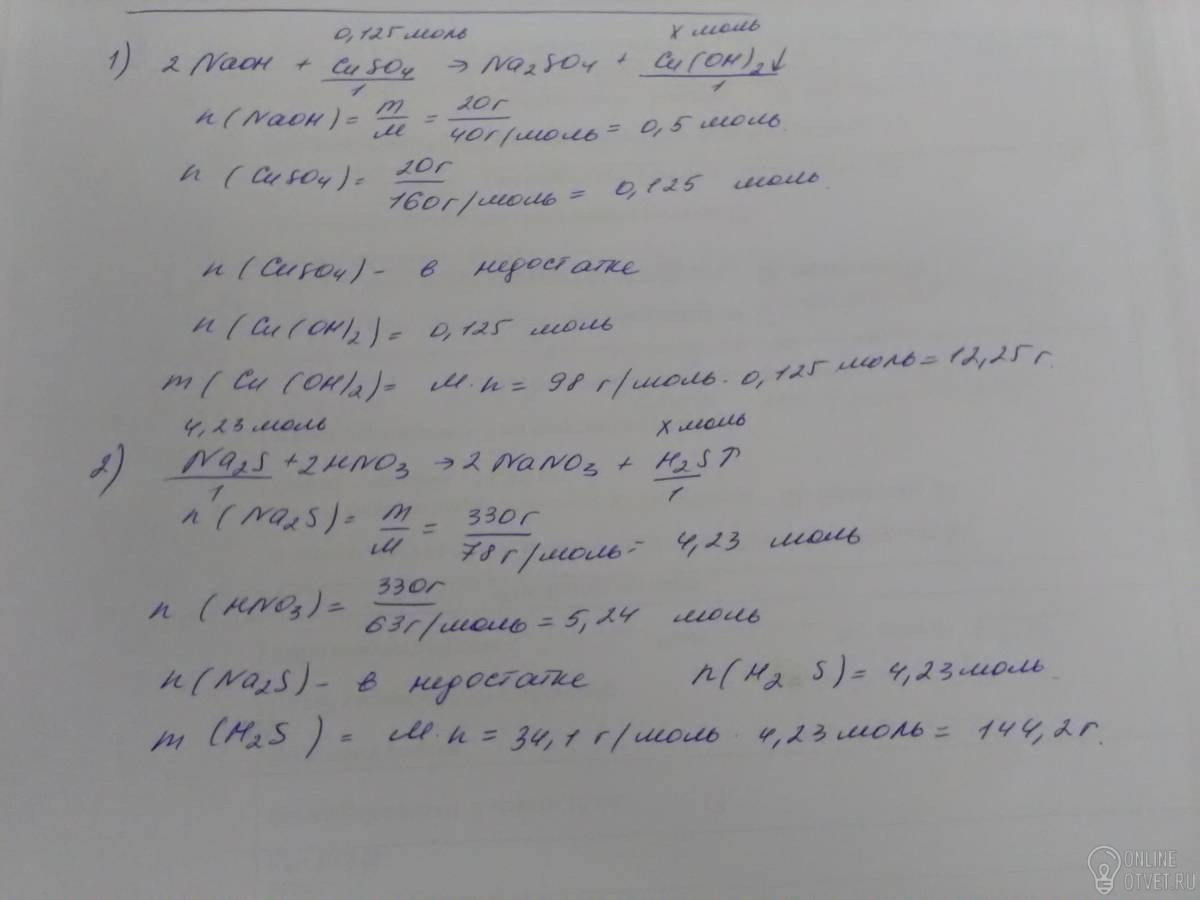 0,125 моль х моль
1) 2 NaOH + CuSO4 → Na2SO4 + Cu(OH)2↓
1 1
n (NaOH) = m/M = 20г/40г/моль = 0,5 моль.
n (CuSO4) = 20г/160г/моль = 0,125 моль.
n (CuSO4) - в недостатке
n (Cu(OH)2) = 0,125 моль
m (Cu(OH)2) = M·n = 98 г/моль · 0,125 моль = 12,25 г.
4,23 моль х моль
2) Na2S + 2HNO3 → 2 NaNO3 + H2S↑
1 1
n (Na2S) = m/M = 330г/78г/моль = 4,23 моль
n (HNO3) = 330г/63г/моль = 5,24 моль
n (Na2S) - в недостатке n(H2S) = 4,23 моль
m (H2S) = M·n = 34,1 г/моль · 4,23 моль = 144,2 г.
ONLINE
OTVET.RU